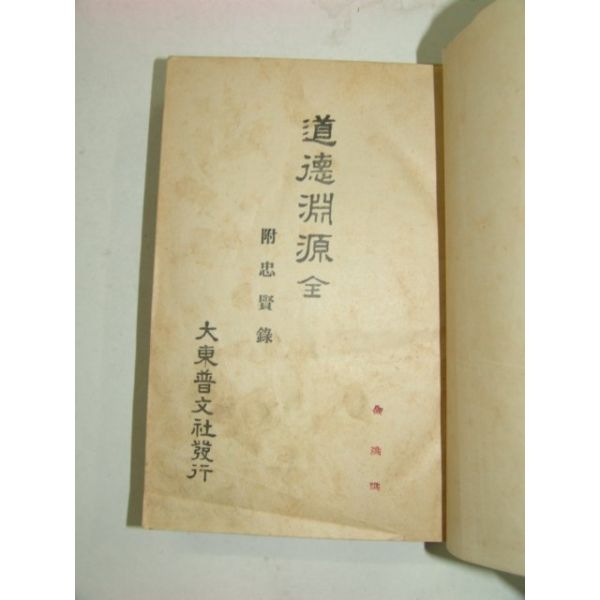 道德淵源 全
附忠賢錄
大東普文社發行